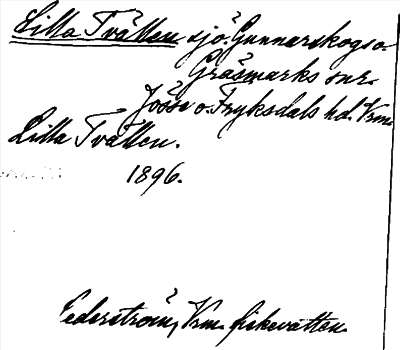 Lilla Tvätten sjö. Gunnarskogs o.
Gräsmarks snr.
Jösse o. Fryksdals hd. Vrm.
Lilla Tvätten.
1896.
Cederström, Vrm. fiskevatten.